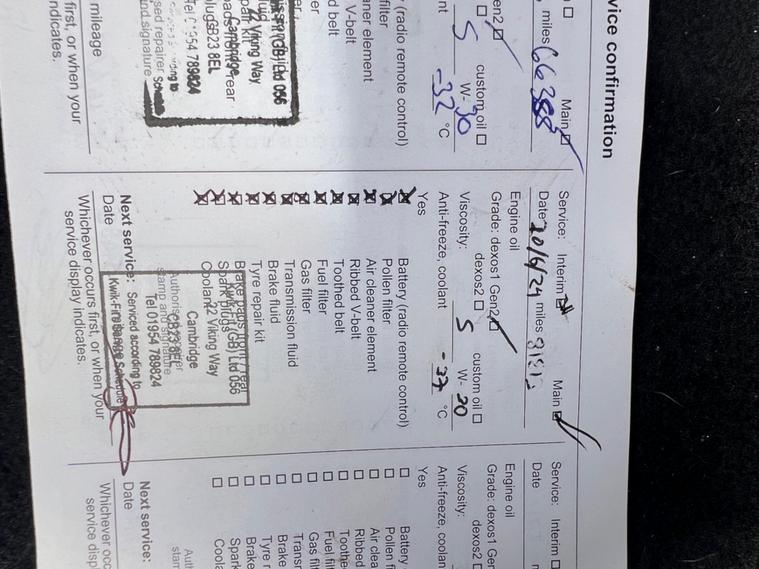 vice confirmation
Main
miles 66388
en2
custom oil
5 W- 30
nt -32 °C
y (radio remote control)
filter
aner element
V-belt
d belt
er
(GB) Ltd 056
2 Viking Way
Cambridge
CB23 8EL
Tel 01954 789824
sed repairer
and signature
mileage
first, or when your
ndicates.
Service: Interim Main
Date 20/6/24 miles
Engine oil
Grade: dexos1 Gen2
dexos2 custom oil
Viscosity: 5 W- 30
Anti-freeze, coolant -37 °C
Yes
Battery (radio remote control)
Pollen filter
Air cleaner element
Ribbed V-belt
Toothed belt
Fuel filter
Gas filter
Transmission fluid
Brake fluid
Tyre repair kit
Brake pads front / rear
Spark plugs
Coolant
Kwik-Fit (GB) Ltd 056
2 Viking Way
Cambridge
CB23 8EL
Tel 01954 789824
Serviced according to
Kwik-Fit Service Schedule
stamp and signature
Next service:
Date
Whichever occurs first, or when your
service display indicates.
Service: Interim
Date
Engine oil
Grade: dexos1 Gen
dexos2
Viscosity:
Anti-freeze, coolan
Yes
Battery
Pollen fi
Air clea
Ribbed
Toothe
Fuel filt
Gas filt
Transr
Brake
Tyre r
Brake
Spark
Coola
Auth
stam
Next service:
Date
Whichever occ
service disp